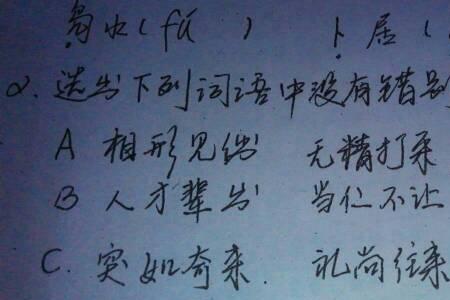 中(fú ) 卜居(
2. 选出下列词语中没有错别
A 相形见绌 无精打采
B 人才辈出 当仁不让
C. 突如奇来. 礼尚往来